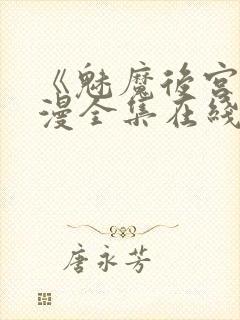 《魅魔後宮
漫全集在綫
唐永芳